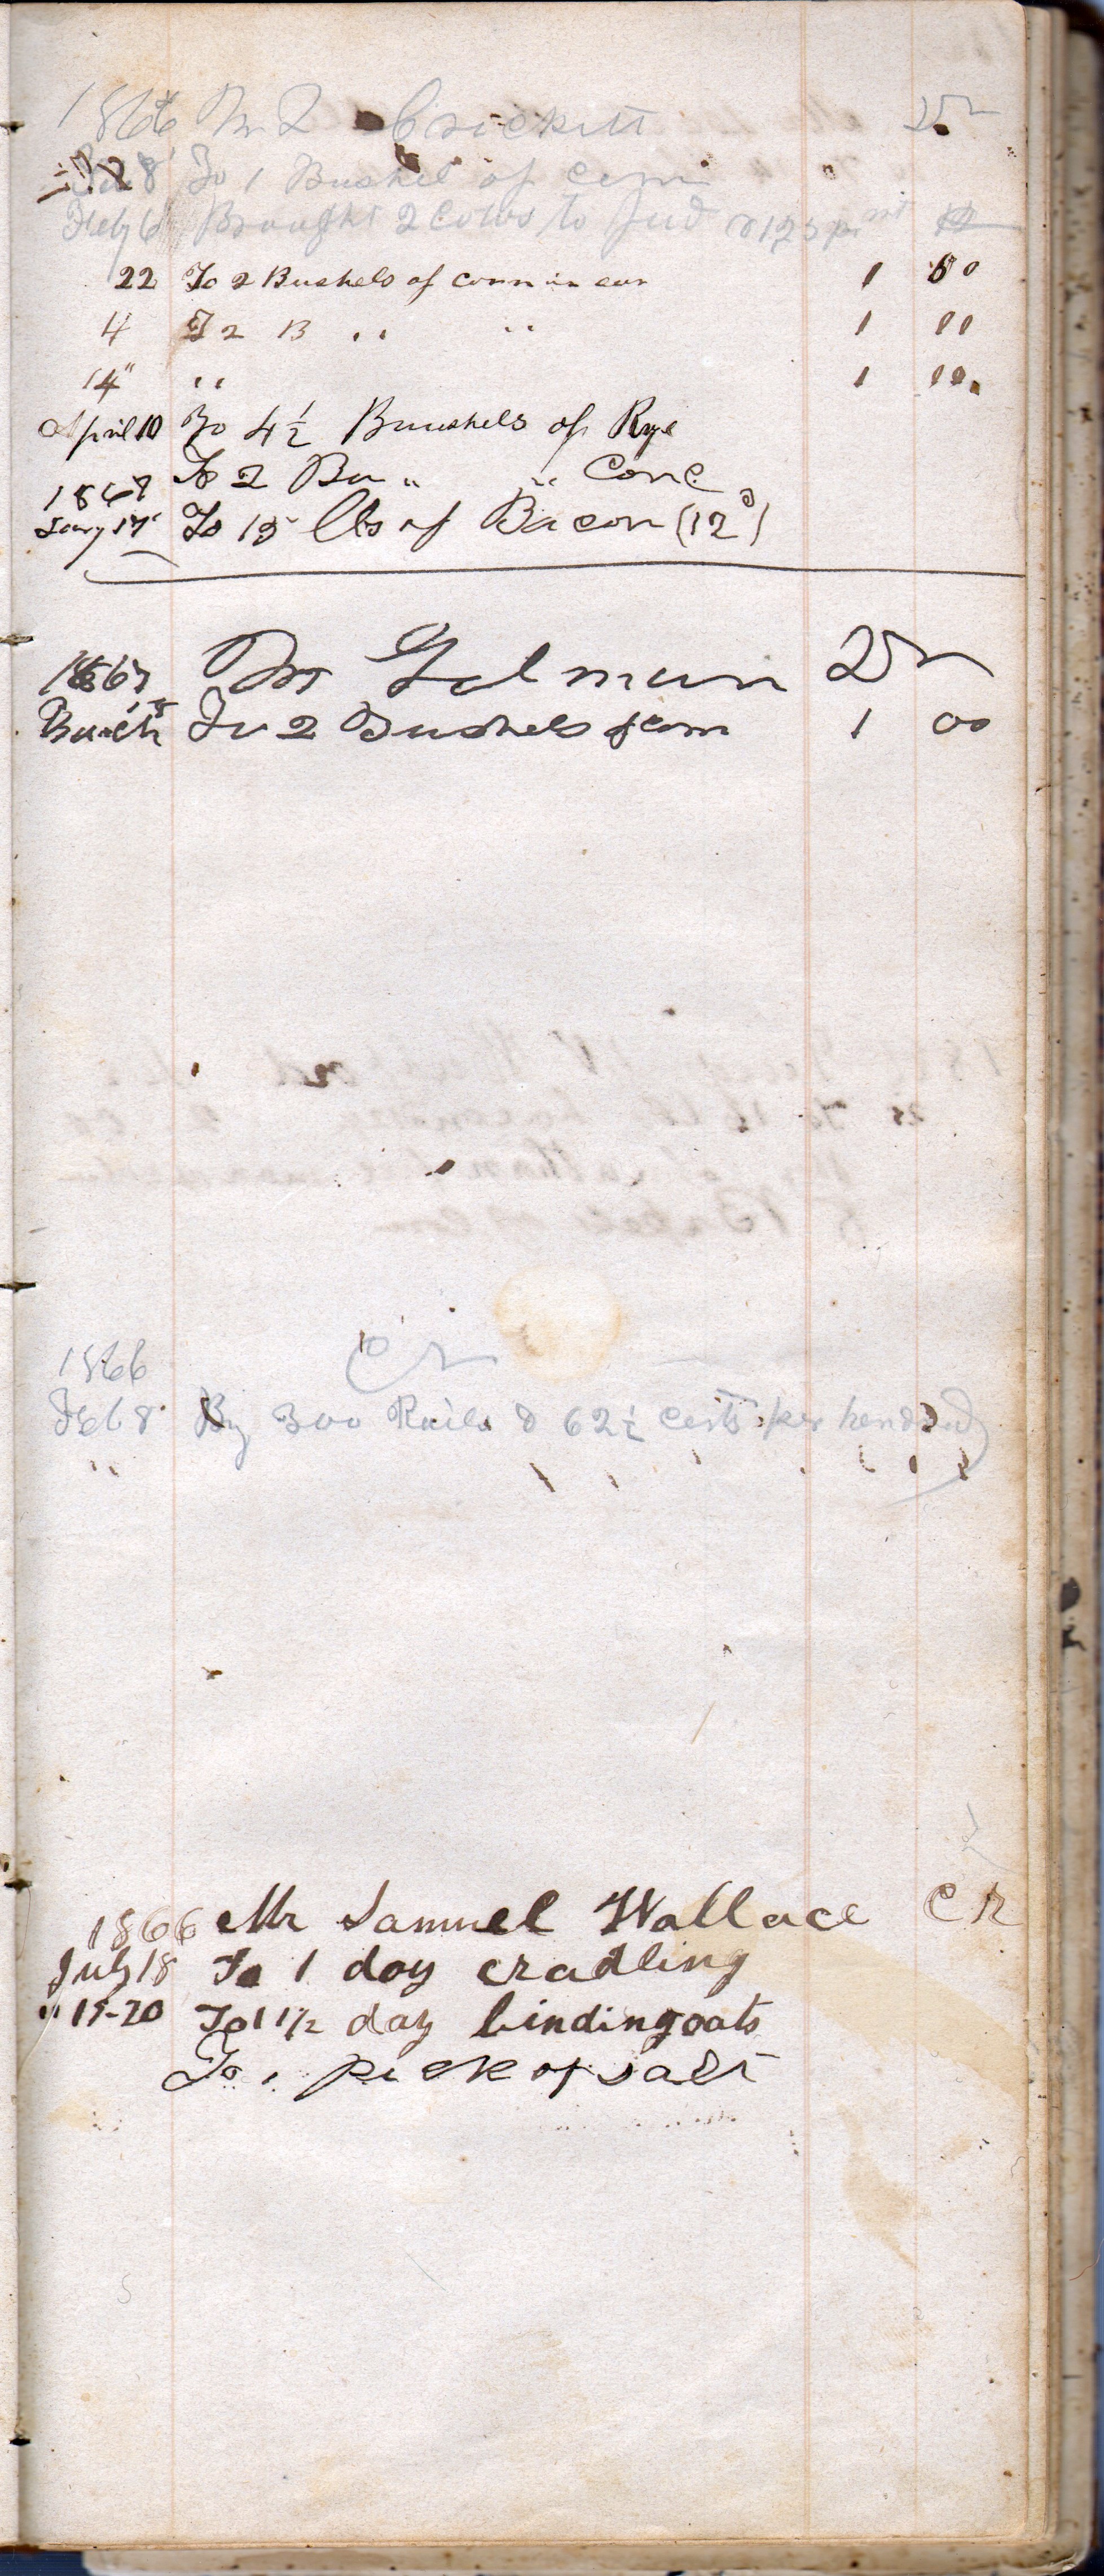 1866 Mr Crickett Dr
8 To 1 Bushel of corn
Feby 6 Brought 2 cows to
22 To 2 Bushels of corn in ear 1 00
4 T 2 B " " 1 "
14" " 1 "
April 10 To 4 1/2 Buushels of Rye
To 2 Bu " " Corn
1867
Jany 17 To 15 lbs of Bacon (12c)
1867 Mr Dr
To 2 Bushels of corn 1 00
1866 Cr
Feb 8 By 300 Rails @ 62 1/2 cents per hundred
"
1866 Mr Samuel Wallace CR
July 18 To 1 day cradling
" 19-20 To 1 1/2 day binding oats
To 1 peck of salt